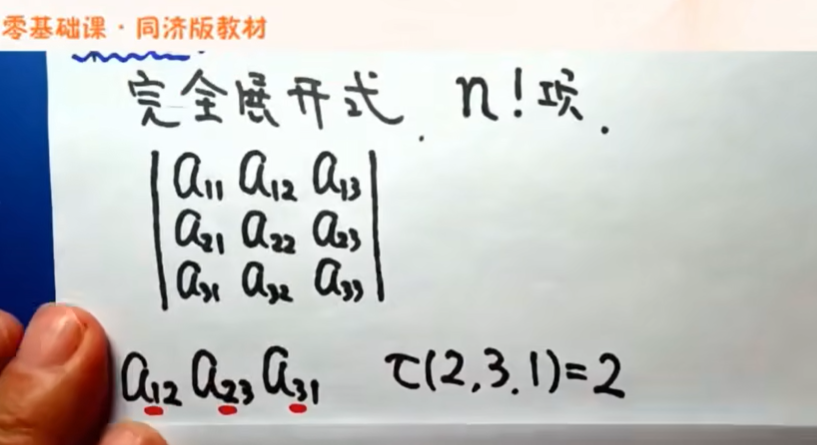 零基础课·同济版教材
完全展开式. n!项.
a11 a12 a13
a21 a22 a23
a31 a32 a33
a12 a23 a31 τ(2,3,1)=2